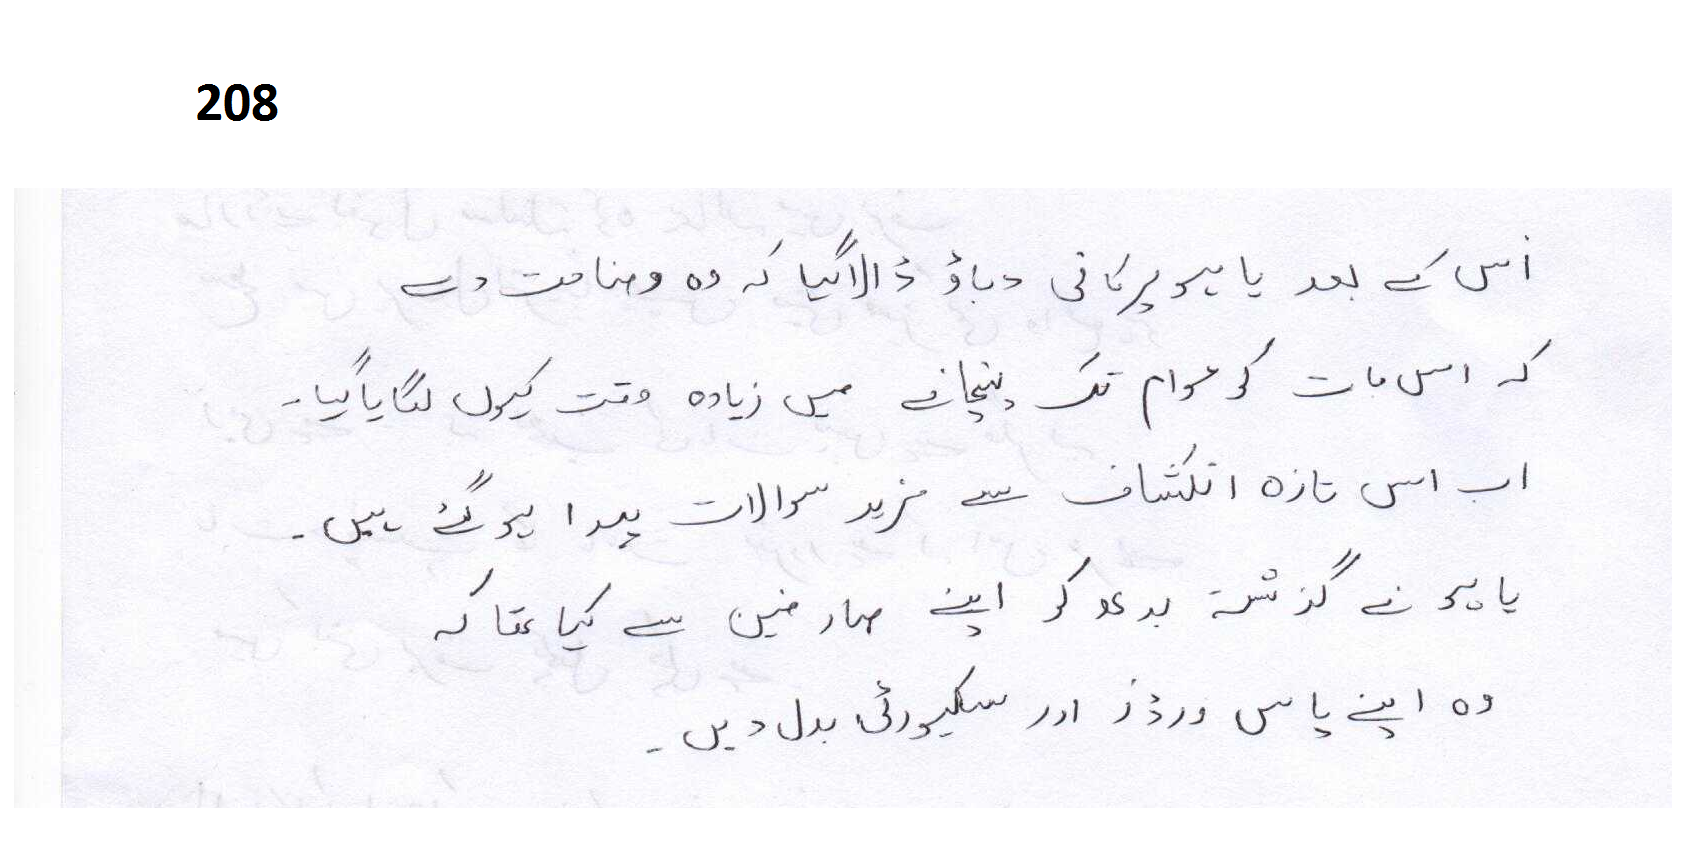 208
اُس کے بعد یاہو پر کافی دباؤ ڈالا گیا کہ وہ وضاحت دے
کہ اس بات کو عوام تک پہنچانے میں زیادہ وقت کیوں لگایا گیا۔
اب اس تازہ انکشاف سے مزید سوالات پیدا ہو گئے ہیں۔
یاہو نے گذشتہ بدھ کو اپنے صارفین سے کہا تھا کہ
وہ اپنے پاس ورڈز اور سکیورٹی بدل دیں۔